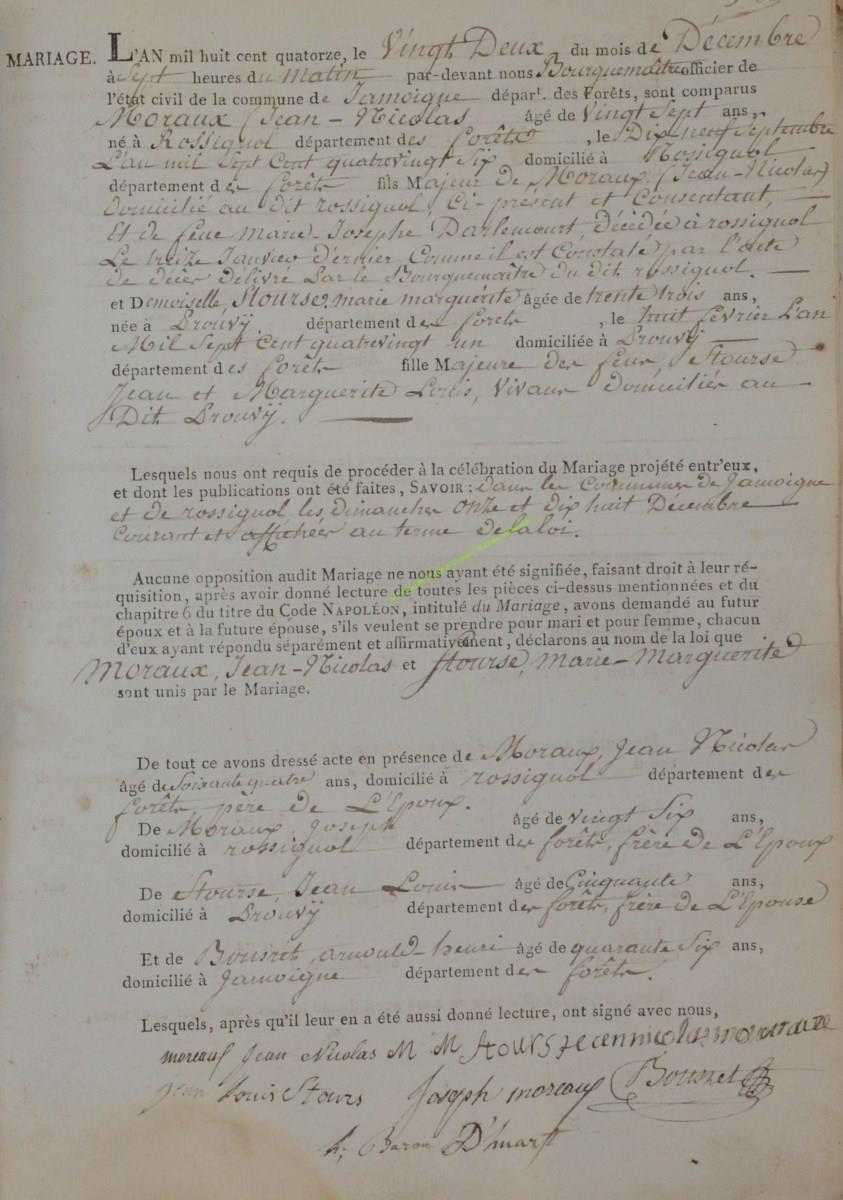 MARIAGE. L'AN mil huit cent quatorze, le Vingt Deux du mois de Décembre
à Sept heures du matin par-devant nous Bourguemaitre officier de
l'état civil de la commune de Jamoigne départ. des Forêts, sont comparus
Moraux (Jean-Nicolas âgé de Vingt Sept ans,
né à Rossignol département des forêts, le Dix neuf Septembre
L'an mil Sept Cent quatrevingt Six domicilié à Rossignol
département des forêts fils Majeur de Moraux (Jean-Nicolas)
domicilié au dit rossignol, Ci-présent et Consentant,
Et de feue marie-Josephe Darlemourt, décédée à rossignol
Le treize Janvier dernier Comme il est Constaté par l'acte
de décès délivré par le Bourguemaître du dit rossignol.
et Demoiselle, Stourse, marie marguérite âgée de trente trois ans,
née à Prouvÿ département des forêts, le huit février L'an
Mil Sept Cent quatrevingt un domiciliée à Prouvÿ
département des forêts fille Majeure des feux, Stourse
Jean et Marguerite Louis, Vivans domiciliés au
Dit Prouvÿ.
Lesquels nous ont requis de procéder à la célébration du Mariage projété entr'eux,
et dont les publications ont été faites, SAVOIR : dans les Communes de Jamoigne
et de rossignol les dimanches onze et dix huit Décembre
Courant et affichées au terme de la loi.
Aucune opposition audit Mariage ne nous ayant été signifiée, faisant droit à leur ré-
quisition, après avoir donné lecture de toutes les pièces ci-dessus mentionnées et du
chapitre 6 du titre du Code NAPOLÉON, intitulé du Mariage, avons demandé au futur
époux et à la future épouse, s'ils veulent se prendre pour mari et pour femme, chacun
d'eux ayant répondu séparément et affirmativement, déclarons au nom de la loi que
Moraux, Jean-Nicolas et Stourse, Marie-Marguerite
sont unis par le Mariage.
De tout ce avons dressé acte en présence de Moraux, Jean Nicolas
âgé de Soixante quatre ans, domicilié à rossignol département des
forêts, père de L'Epoux.
De Moraux, Joseph âgé de vingt Six ans,
domicilié à rossignol département des forêts, frère de L'Epoux
De Stourse, Jean Louis âgé de Cinquante ans,
domicilié à Prouvÿ département des forêts, frère de L'Epouse
Et de Bousret, arnould-henri âgé de quarante Six ans,
domicilié à Jamoigne département des forêts.
Lesquels, après qu'il leur en a été aussi donné lecture, ont signé avec nous,
moreaux Jean Nicolas M M Stours jeannicolas moraux
jean Louis Stours Joseph moreaux Bousret
Baron D'mart